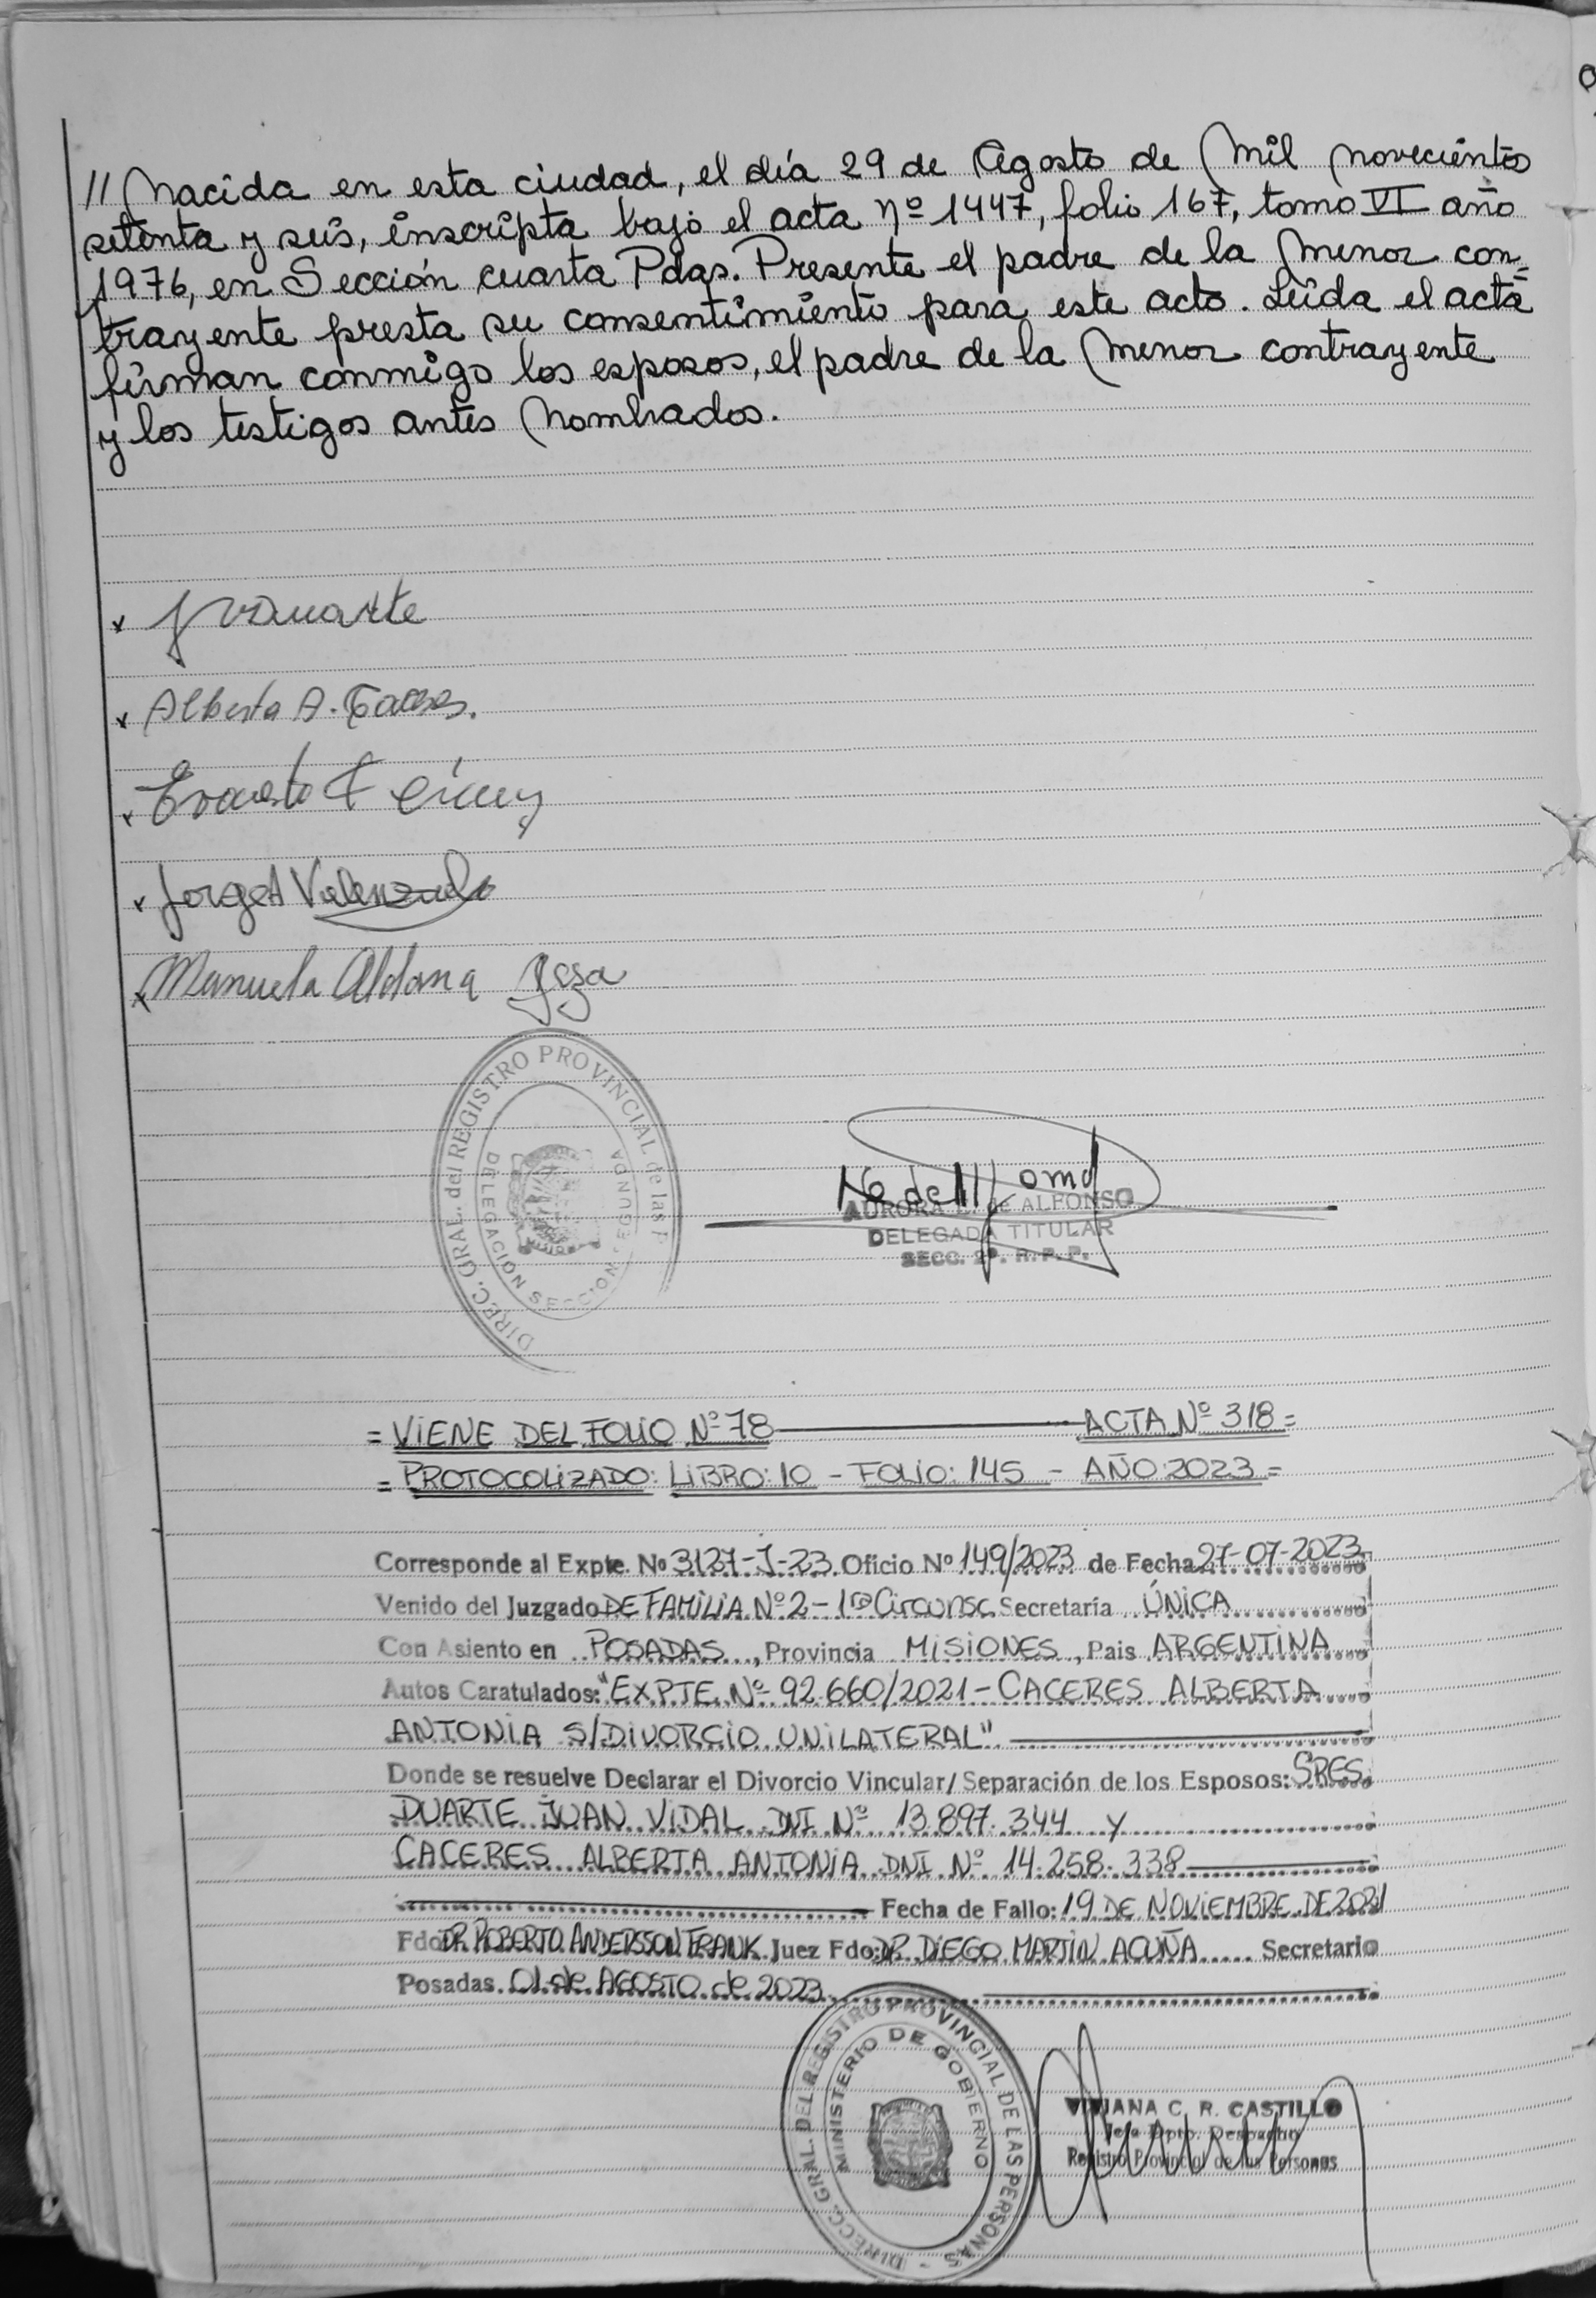 // Nacida en esta ciudad, el día 29 de Agosto de Mil Novecientos
setenta y seis, inscripta bajo el acta Nº 1447, folio 167, tomo VI año
1976, en Sección cuarta Pdas. Presente el padre de la Menor con-
trayente presta su consentimiento para este acto. Leída el acta
firman conmigo los esposos, el padre de la Menor contrayente
y los testigos antes Nombrados.
x JVDuarte
x Alberta A. Caceres.
x Ernesto
x Jorge A Valenzuela
x Manuela Aldana
DIREC. GRAL. del REGISTRO PROVINCIAL de las P
DELEGACIÓN SECCION SEGUNDA
AURORA de ALFONSO
DELEGADA TITULAR
SECC. 2ª. R. P. P.
= VIENE DEL FOLIO Nº 78 ACTA Nº 318 =
= PROTOCOLIZADO: LIBRO: 10 - FOLIO: 145 - AÑO 2023 =
Corresponde al Expte. Nº 3127-J-23 Oficio Nº 149/2023 de Fecha 27-07-2023
Venido del Juzgado DE FAMILIA Nº 2 - 1ra Circunsc. Secretaría ÚNICA
Con Asiento en POSADAS, Provincia MISIONES, Pais ARGENTINA
Autos Caratulados: "EXPTE. Nº 92.660/2021 - CACERES ALBERTA
ANTONIA S/DIVORCIO UNILATERAL"
Donde se resuelve Declarar el Divorcio Vincular/Separación de los Esposos: SRES.
DUARTE JUAN VIDAL DNI Nº 13.897.344 Y
CACERES ALBERTA ANTONIA DNI Nº 14.258.338
Fecha de Fallo: 19 DE NOVIEMBRE DE 2021
Fdo: DR. ROBERTO ANDERSSON FRANK Juez Fdo: DR. DIEGO MARTIN ACUÑA Secretario
Posadas 01 de AGOSTO de 2023
DIRECC. GRAL. DEL REGISTRO PROVINCIAL DE LAS PERSONAS -
MINISTERIO DE GOBIERNO
VIVIANA C. R. CASTILLO
Jefe Dpto. Despacho
Registro Provincial de las Personas